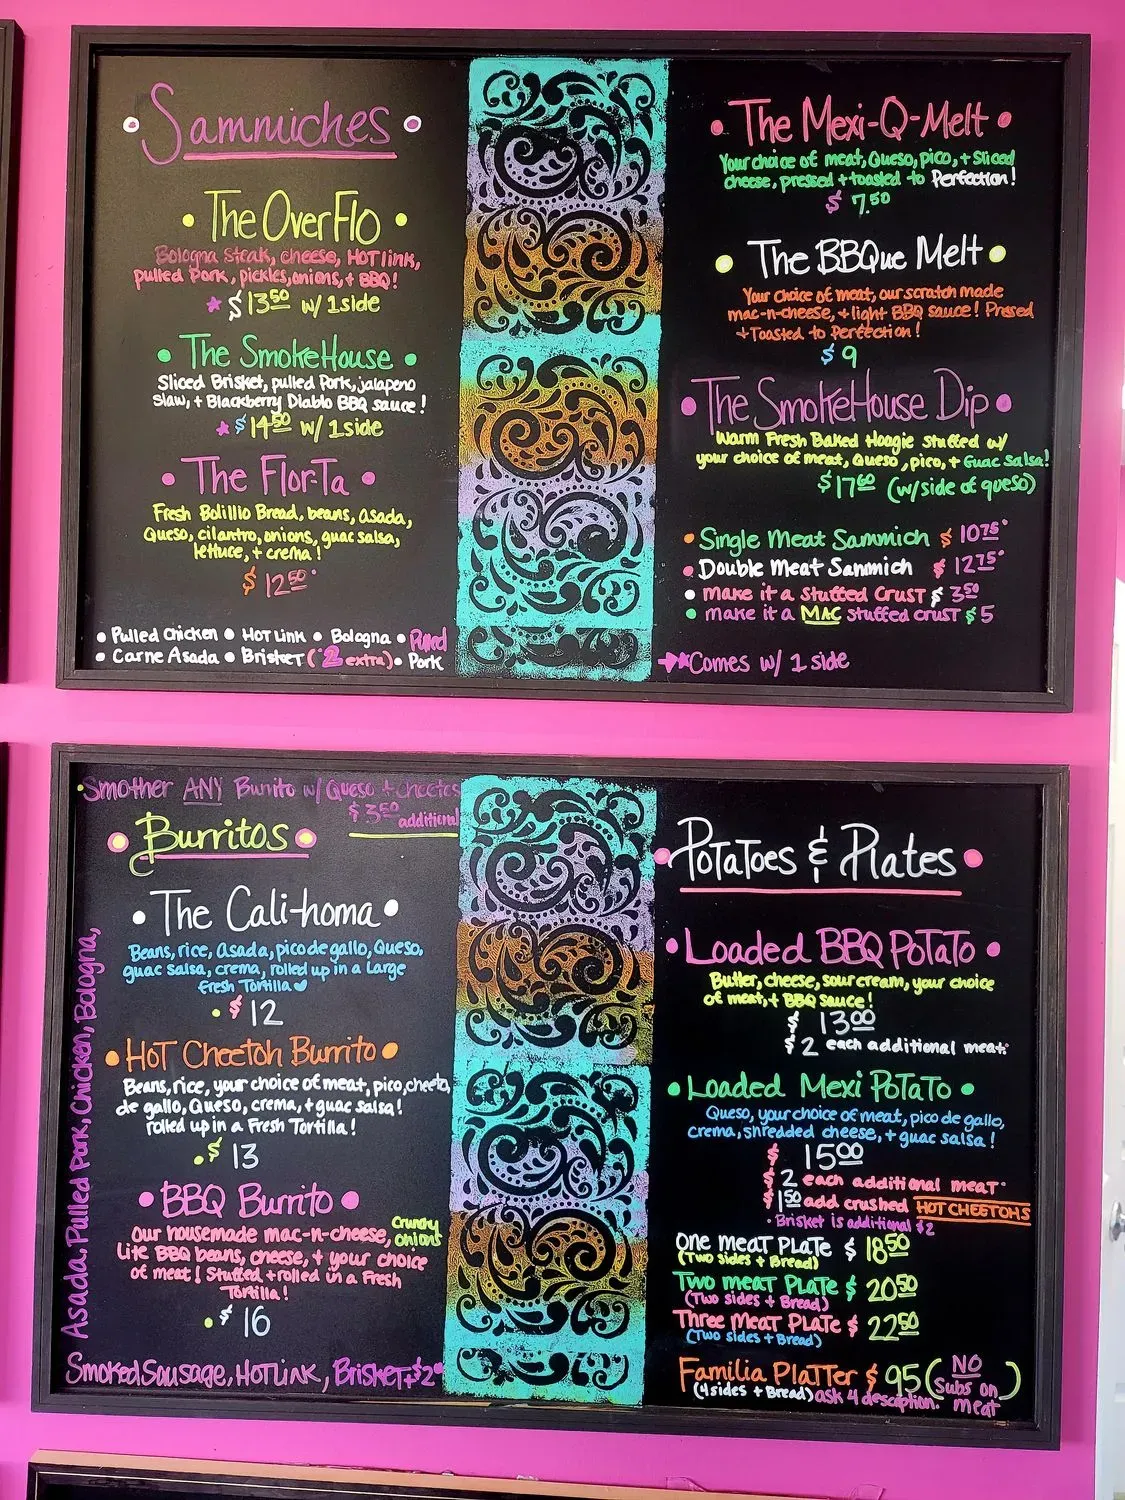 Sammiches
The OverFlo
Bologna Steak, cheese, HOT link,
pulled Pork, pickles, onions, + BBQ!
$13.50 w/ 1side
The SmokeHouse
Sliced Brisket, pulled Pork, jalapeno
slaw, + Blackberry Diablo BBQ sauce!
$14.50 w/ 1side
The Flor-Ta
Fresh Bolillio Bread, beans, asada,
Queso, cilantro, onions, guac salsa,
lettuce, + crema!
$12.50
Pulled Chicken • HOT Link • Bologna • Pulled
Carne Asada • Brisket ($2 extra) • Pork
The Mexi-Q-Melt
Your choice of meat, Queso, pico, + Sliced
cheese, pressed + toasted to Perfection!
$7.50
The BBQue Melt
Your choice of meat, our scratch made
mac-n-cheese, + light BBQ sauce! Pressed
+ Toasted to Perfection!
$9
The SmokeHouse Dip
Warm Fresh Baked Hoagie stuffed w/
your choice of meat, Queso, pico, + Guac Salsa!
$17.60 (w/side of queso)
Single Meat Sammich $10.75
Double Meat Sammich $12.75
make it a stuffed Crust $3.50
make it a MAC stuffed crust $5
Comes w/ 1 side
Smother ANY Burrito w/ Queso + cheetos
$3.50 additional
Burritos
The Cali-homa
Beans, rice, asada, pico de gallo, Queso,
guac salsa, crema, rolled up in a Large
Fresh Tortilla
$12
HOT Cheetoh Burrito
Beans, rice, your choice of meat, pico, cheeto,
de gallo, Queso, crema, + guac salsa!
rolled up in a Fresh Tortilla!
$13
BBQ Burrito
Our housemade mac-n-cheese, Crunchy
onions
Lite BBQ beans, cheese, + your choice
of meat! Stuffed + rolled in a Fresh
Tortilla!
$16
Asada, Pulled Pork, Chicken, Bologna,
Smoked Sausage, HOT Link, Brisket + $2
Potatoes & Plates
Loaded BBQ PoTaTo
Butter, cheese, sour cream, your choice
of meat, + BBQ sauce!
$13.00
$2 each additional meat
Loaded Mexi PoTaTo
Queso, your choice of meat, pico de gallo,
crema, shredded cheese, + guac salsa!
$15.00
$2 each additional meat
$1.50 add crushed HOT CHEETOHS
Brisket is additional $2
One meat Plate $18.50
(Two sides + Bread)
Two meat Plate $20.50
(Two sides + Bread)
Three Meat Plate $22.50
(Two sides + Bread)
Familia Platter $95 (NO
Subs on
meat)
(4 sides + Bread) ask 4 description.